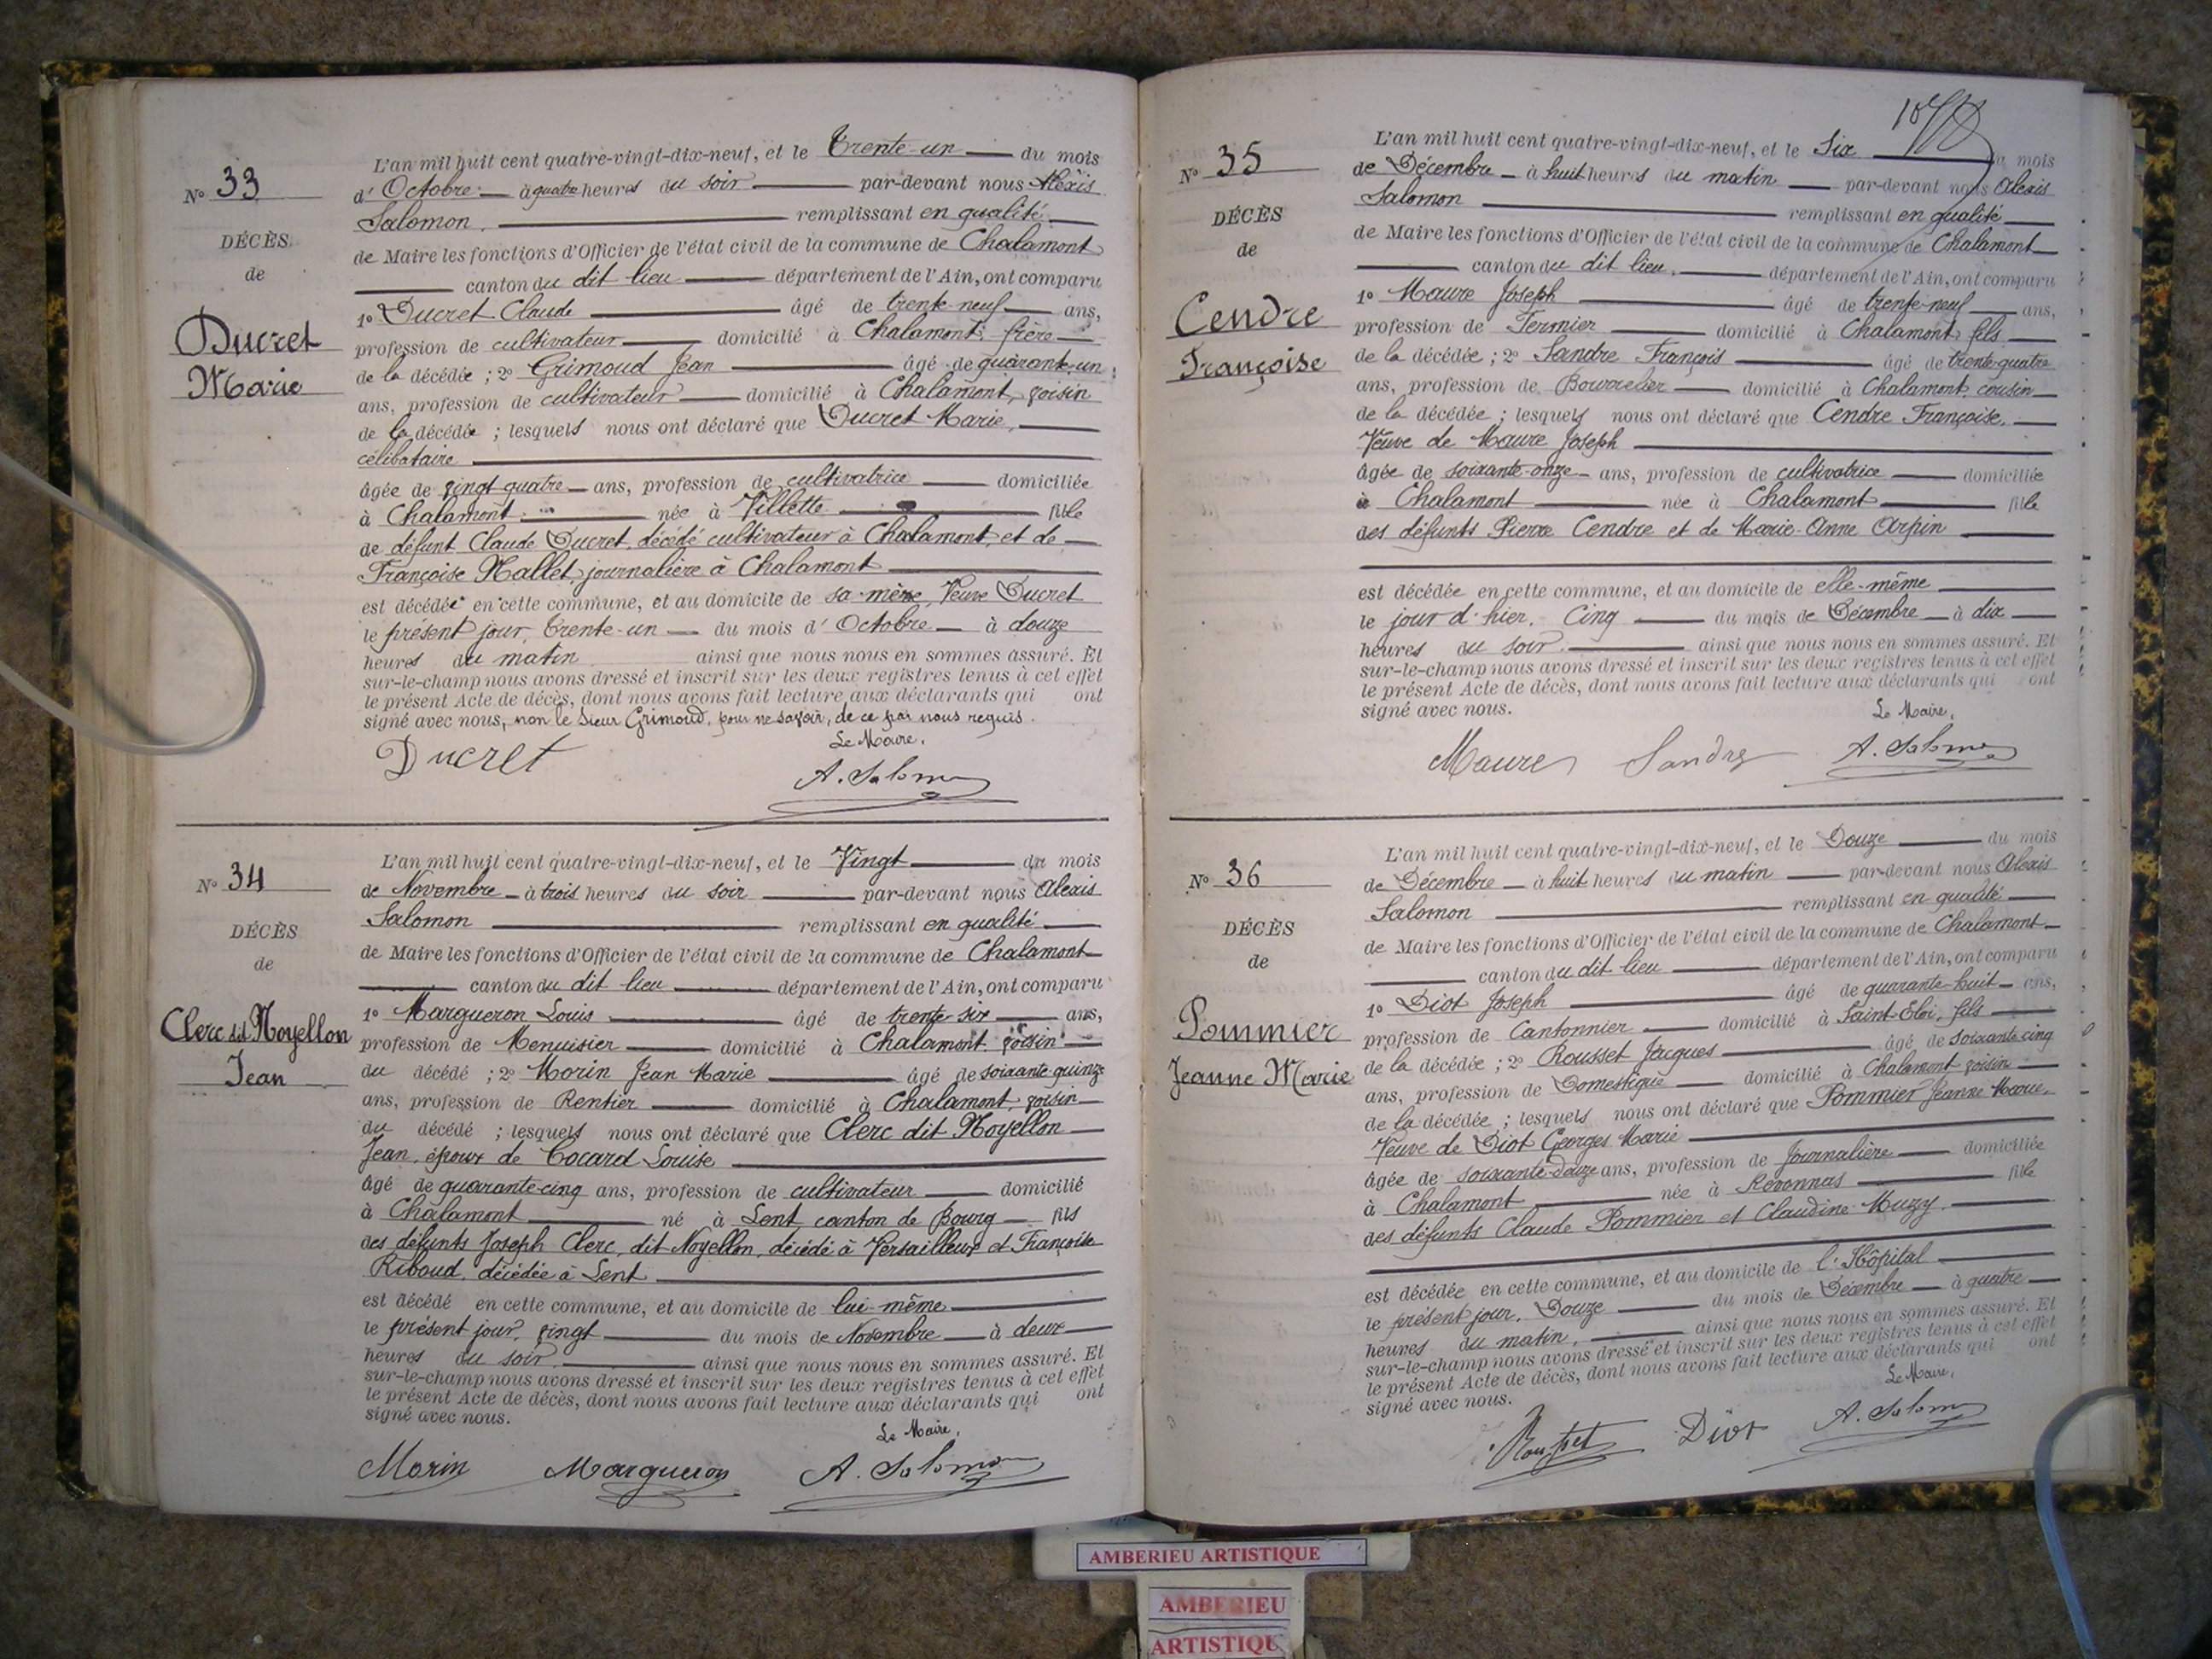 N° 33
DÉCÈS
de
Ducret
Marie
L'an mil huit cent quatre-vingt-dix-neuf, et le Trente-un du mois
d'Octobre à quatre heures du soir par-devant nous Alexis
Salomon remplissant en qualité
de Maire les fonctions d'Officier de l'état civil de la commune de Chalamont
canton du dit lieu département de l'Ain, ont comparu
1° Ducret Claude âgé de trente-neuf ans,
profession de cultivateur domicilié à Chalamont, frère
de la décédée ; 2° Grimoud Jean âgé de quarante-un
ans, profession de cultivateur domicilié à Chalamont, voisin
de la décédée ; lesquels nous ont déclaré que Ducret Marie,
célibataire
âgée de vingt quatre ans, profession de cultivatrice domiciliée
à Chalamont née à Villette fille
de défunt Claude Ducret, décédé cultivateur à Chalamont, et de
Françoise Mallet, journalière à Chalamont
est décédée en cette commune, et au domicile de sa mère, Veuve Ducret
le présent jour, trente-un du mois d'Octobre à douze
heures du matin ainsi que nous nous en sommes assuré. Et
sur-le-champ nous avons dressé et inscrit sur les deux registres tenus à cet effet
le présent Acte de décès, dont nous avons fait lecture aux déclarants qui ont
signé avec nous, non le Sieur Grimoud, pour ne savoir, de ce par nous requis.
Le Maire,
Ducret A. Salomon
N° 34
DÉCÈS
de
Clerc dit Noyellon
Jean
L'an mil huit cent quatre-vingt-dix-neuf, et le Vingt du mois
de Novembre à trois heures du soir par-devant nous Alexis
Salomon remplissant en qualité
de Maire les fonctions d'Officier de l'état civil de la commune de Chalamont
canton du dit lieu département de l'Ain, ont comparu
1° Margueron Louis âgé de trente-six ans,
profession de Menuisier domicilié à Chalamont, voisin
du décédé ; 2° Morin Jean Marie âgé de soixante quinze
ans, profession de Rentier domicilié à Chalamont, voisin
du décédé ; lesquels nous ont déclaré que Clerc dit Noyellon
Jean, époux de Cocard Louise
âgé de quarante-cinq ans, profession de cultivateur domicilié
à Chalamont né à Lent canton de Bourg fils
des défunts Joseph Clerc, dit Noyellon, décédé à Versailleux et Françoise
Riboud, décédée à Lent
est décédé en cette commune, et au domicile de lui-même
le présent jour, vingt du mois de Novembre à deux
heures du soir ainsi que nous nous en sommes assuré. Et
sur-le-champ nous avons dressé et inscrit sur les deux registres tenus à cet effet
le présent Acte de décès, dont nous avons fait lecture aux déclarants qui ont
signé avec nous.
Le Maire,
Morin Margueron A. Salomon
N° 35
DÉCÈS
de
Cendre
Françoise
L'an mil huit cent quatre-vingt-dix-neuf, et le Six du mois
de Décembre à huit heures du matin par-devant nous Alexis
Salomon remplissant en qualité
de Maire les fonctions d'Officier de l'état civil de la commune de Chalamont
canton du dit lieu, département de l'Ain, ont comparu
1° Maure Joseph âgé de trente-neuf ans,
profession de Fermier domicilié à Chalamont, fils
de la décédée ; 2° Sandre François âgé de trente-quatre
ans, profession de Bourrelier domicilié à Chalamont, cousin
de la décédée ; lesquels nous ont déclaré que Cendre Françoise,
Veuve de Maure Joseph
âgée de soixante-onze ans, profession de cultivatrice domiciliée
à Chalamont née à Chalamont fille
des défunts Pierre Cendre et de Marie-Anne Arpin
est décédée en cette commune, et au domicile de elle-même
le jour d'hier, Cinq du mois de Décembre à dix
heures du soir. ainsi que nous nous en sommes assuré. Et
sur-le-champ nous avons dressé et inscrit sur les deux registres tenus à cet effet
le présent Acte de décès, dont nous avons fait lecture aux déclarants qui ont
signé avec nous.
Le Maire,
Maure Sandre A. Salomon
N° 36
DÉCÈS
de
Pommier
Jeanne Marie
L'an mil huit cent quatre-vingt-dix-neuf, et le Douze du mois
de Décembre à huit heures du matin par-devant nous Alexis
Salomon remplissant en qualité
de Maire les fonctions d'Officier de l'état civil de la commune de Chalamont
canton du dit lieu département de l'Ain, ont comparu
1° Diot Joseph âgé de quarante-huit ans,
profession de Cantonnier domicilié à Saint-Eloi, fils
de la décédée ; 2° Rousset Jacques âgé de soixante cinq
ans, profession de Domestique domicilié à Chalamont voisin
de la décédée ; lesquels nous ont déclaré que Pommier Jeanne Marie,
Veuve de Diot Georges Marie
âgée de soixante-douze ans, profession de Journalière domiciliée
à Chalamont née à Revonnas fille
des défunts Claude Pommier et Claudine Muzy
est décédée en cette commune, et au domicile de l'Hôpital
le présent jour, Douze du mois de Décembre à quatre
heures du matin, ainsi que nous nous en sommes assuré. Et
sur-le-champ nous avons dressé et inscrit sur les deux registres tenus à cet effet
le présent Acte de décès, dont nous avons fait lecture aux déclarants qui ont
signé avec nous.
Le Maire,
Rousset Diot A. Salomon
AMBERIEU ARTISTIQUE
AMBERIEU
ARTISTIQU